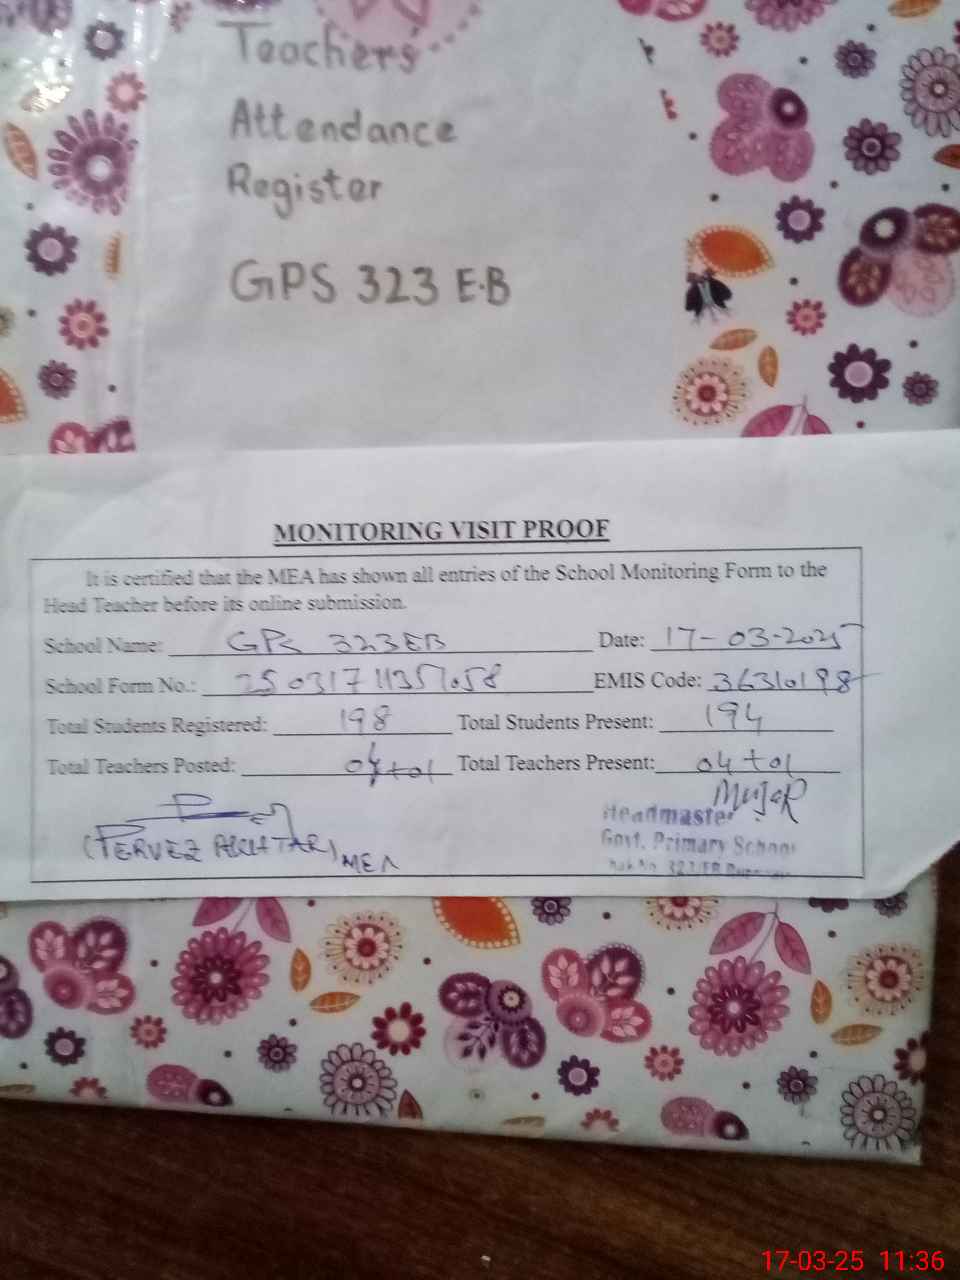 Teachers'
Attendance
Register
GPS 323 E·B
MONITORING VISIT PROOF
It is certified that the MEA has shown all entries of the School Monitoring Form to the
Head Teacher before its online submission.
School Name: GPS 323EB Date: 17-03-2025
School Form No.: EMIS Code: 36310198
Total Students Registered: 198 Total Students Present: 194
Total Teachers Posted: 04+01 Total Teachers Present: 04+01
(PERVEZ AKHTAR) MEA
Headmaster
Govt. Primary School
17-03-25 11:36